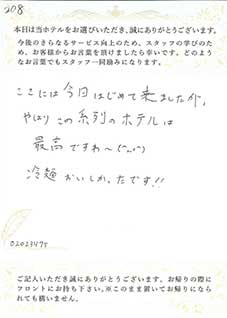 208
本日は当ホテルをお選びいただき、誠にありがとうございます。
今後のさらなるサービス向上のため、スタッフの学びのため、
お客様からお言葉を頂けましたら幸いです。どのようなお言葉でもスタッフ一同励みになります。
ここには今日はじめて来ましたが、
やはりこの系列のホテルは
最高ですわ〜(^^)
冷麺おいしかったです!!
02023475
ご記入いただき誠にありがとうございます。お帰りの際に
フロントにお持ち下さい。※このまま置いてお帰りになら
れても構いません。